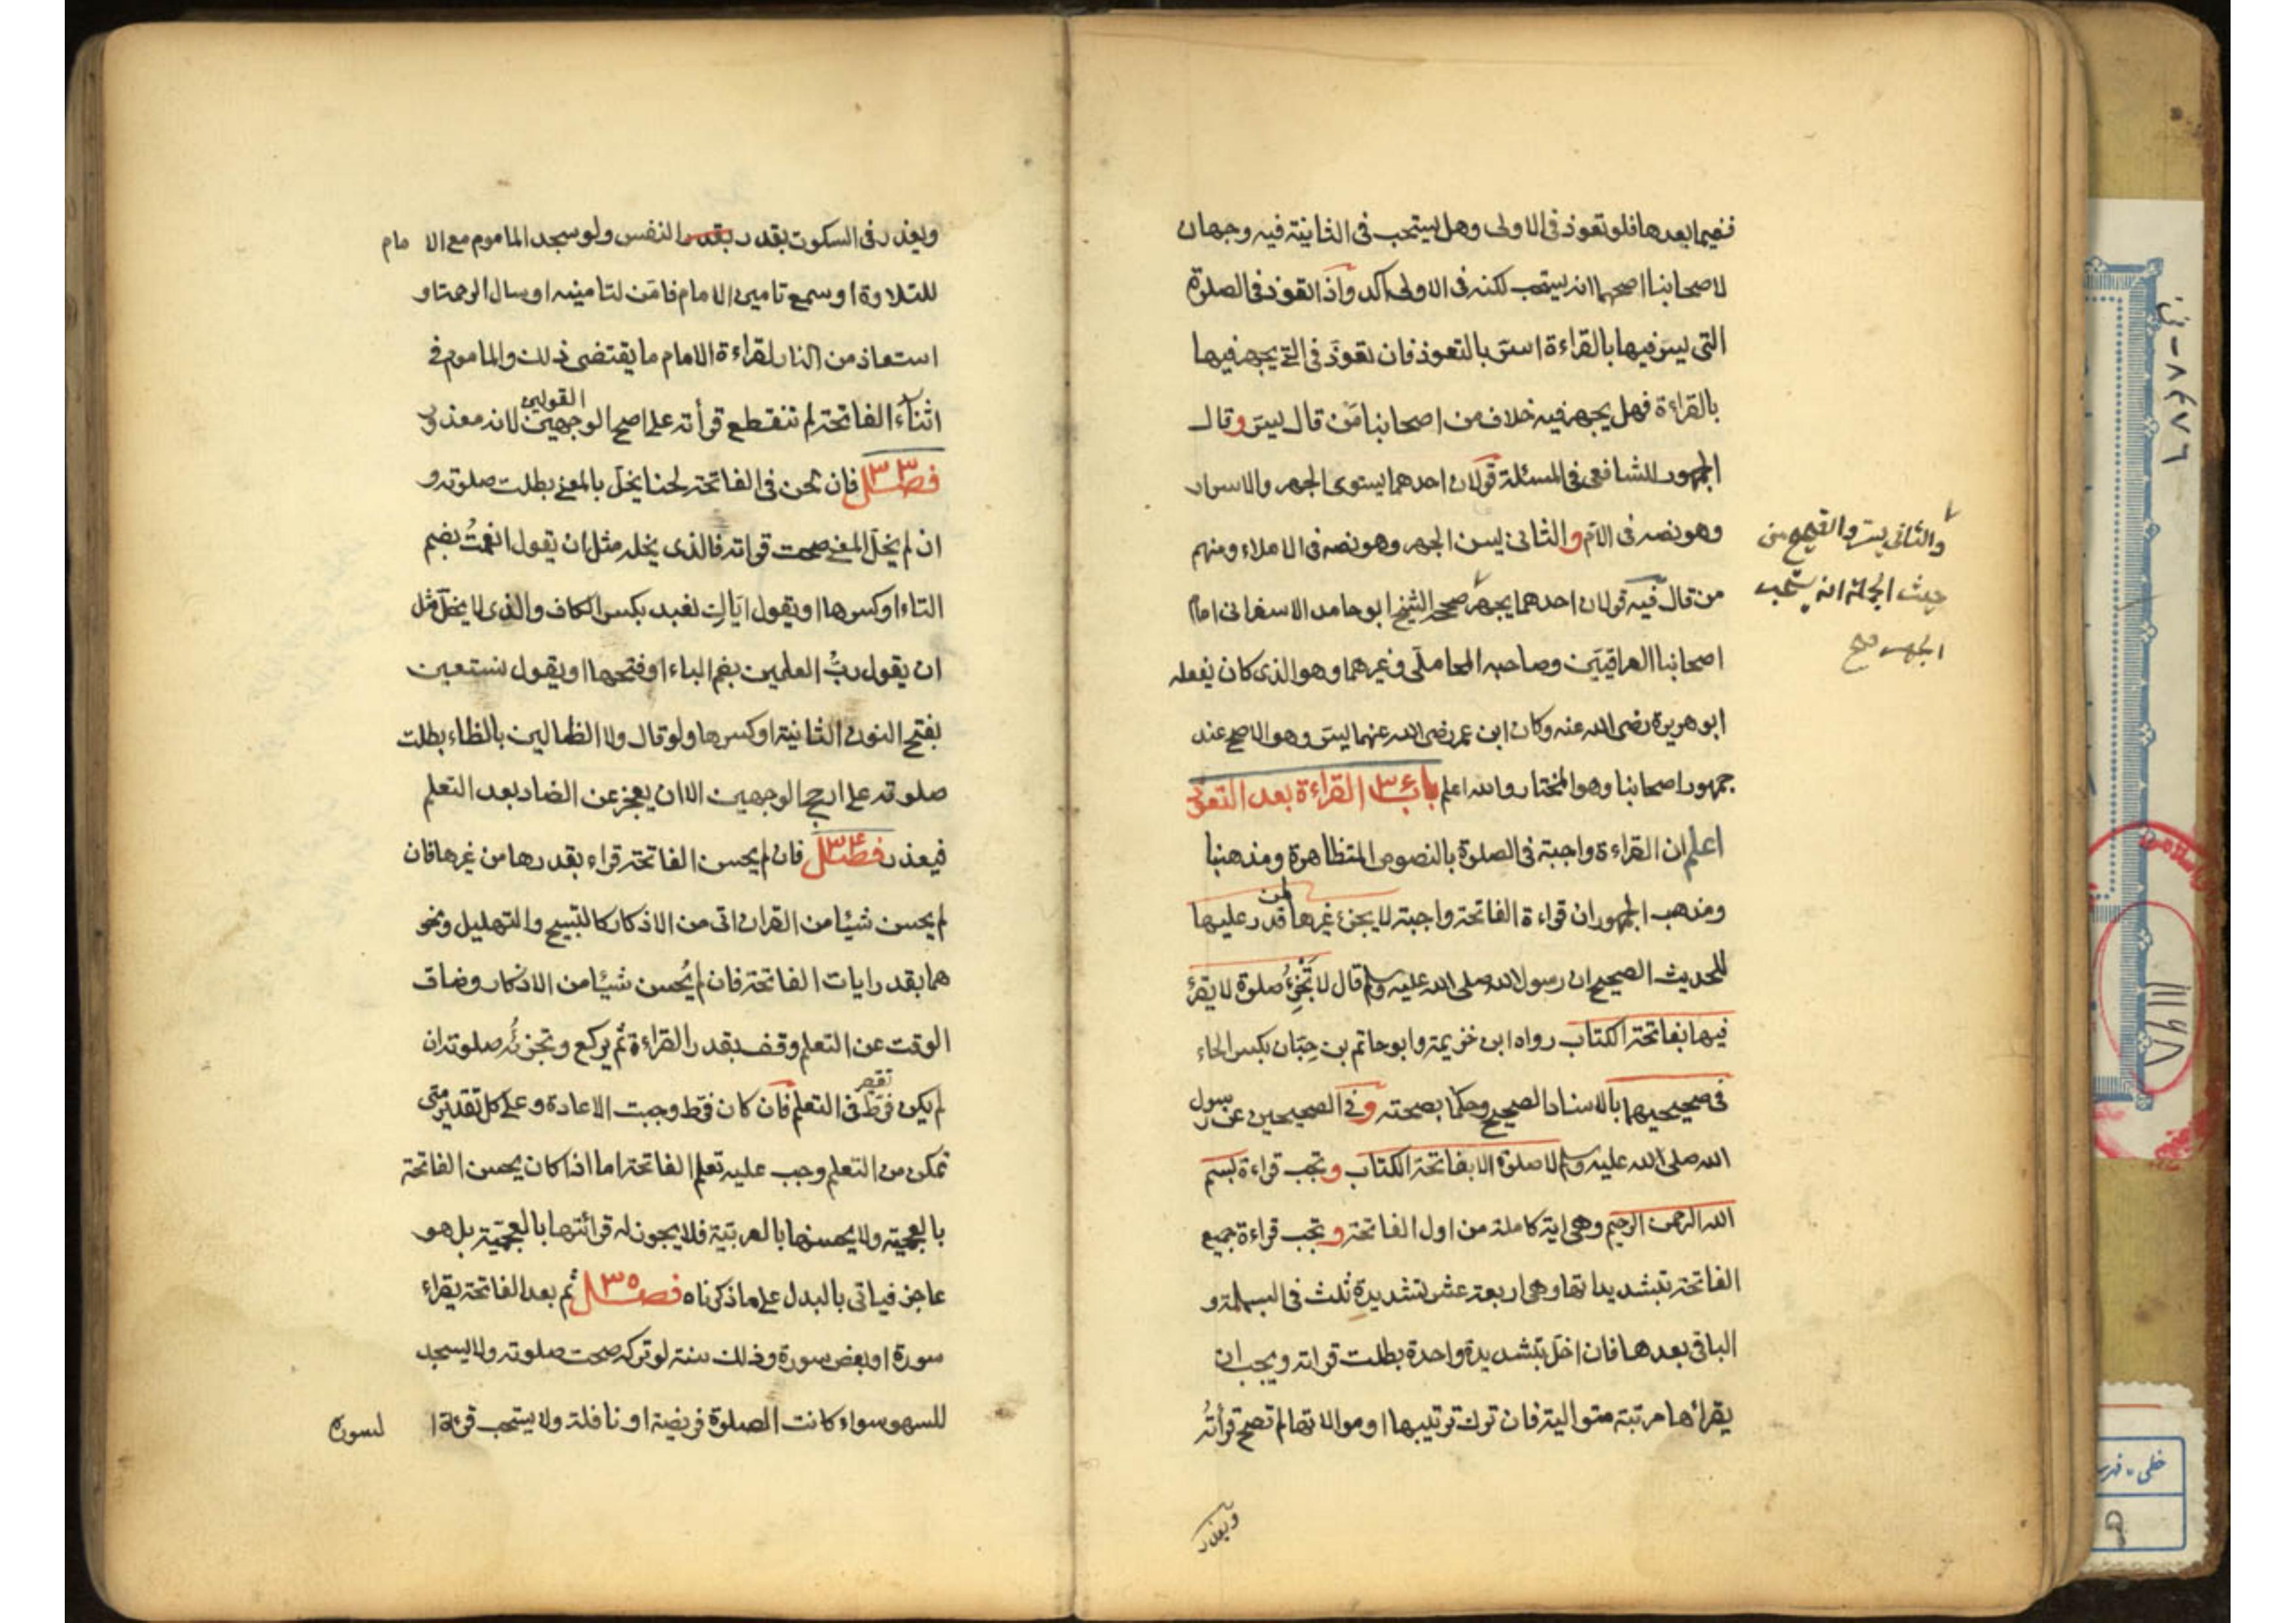 ففيما بعدها فلو تعوذ في الاولى وهل يستحب في الثانية فيه وجهان
لاصحابنا اصحهما انه يستحب لكنه في الاولى اكد واذا تعوذ في الصلوة
التي يسر فيها بالقراءة اسر بالتعوذ فان تعوذ في التي يجهر فيها
بالقراءة فهل يجهر فيه خلاف من اصحابنا من قال يسر وقال
الجمهور للشافعي في المسئلة قولان احدهما يستوى الجهر والاسرار
وهو نصه في الام والثاني يسن الجهر وهو نصه في الاملاء ومنهم
من قال فيه قولان احدهما يجهر صححه الشيخ ابو حامد الاسفراني امام
اصحابنا العراقيين وصاحبه المحاملي وغيرهما وهو الذي كان يفعله
ابو هريرة رضى الله عنه وكان ابن عمر رضى الله عنهما يسر وهو الاصح عند
جمهور اصحابنا وهو المختار والله اعلم باب ٣٤ القراءة بعد التعوذ
اعلم ان القراءة واجبة في الصلوة بالنصوص المتظاهرة ومذهبنا
ومذهب الجمهور ان قراءة الفاتحة واجبة لا يجزئ غيرها لمن قدر عليها
للحديث الصحيح ان رسول الله صلى الله عليه وسلم قال لا تجزئ صلوة لا يقرأ
فيها بفاتحة الكتاب رواه ابن خزيمة وابو حاتم بن حبان بكسر الحاء
في صحيحيهما بالاسناد الصحيح وحكما بصحته وفي الصحيحين عن رسول
الله صلى الله عليه وسلم لا صلوة الا بفاتحة الكتاب وتجب قراءة بسم
الله الرحمن الرحيم وهي اية كاملة من اول الفاتحة وتجب قراءة جميع
الفاتحة بتشديداتها وهي اربعة عشر تشديدة ثلث في البسملة و
الباقي بعدها فان اخل بتشديدة واحدة بطلت قراته ويجب ان
يقرأها مرتبة متوالية فان ترك ترتيبها او موالاتها لم تصح قرأته
ويعذر
والثاني يسر والصحيح من
حيث الجملة انه يستحب
الجهر صح
ويعذر في السكوت بقدر بقدر النفس ولو سجد الماموم مع الامام
للتلاوة او سمع تامين الامام فامن لتامينه او سال الرحمة او
استعاذ من النار لقراءة الامام ما يقتضى ذلك والماموم في
اثناء الفاتحة لم تنقطع قرأته على اصح الوجهين القولين لانه معذور
فصل ٣٣ فان لحن في الفاتحة لحنا يخل بالمعنى بطلت صلوته و
ان لم يخل المعنى صحت قراته فالذى يخله مثل ان يقول انعمت بضم
التاء او كسرها او يقول اياك نعبد بكسر الكاف والذى لا يخل مثل
ان يقول رب العلمين بضم الباء او فتحها او يقول نستعين
بفتح النون الثانية او كسرها ولو قال ولا الظالين بالظاء بطلت
صلوته على ارجح الوجهين الا ان يعجز عن الضاد بعد التعلم
فيعذر فصل ٣٤ فان لم يحسن الفاتحة قراء بقدرها من غيرها فان
لم يحسن شيئا من القران اتى من الاذكار كالتسبيح والتهليل ونحو
هما بقدر ايات الفاتحة فان لم يُحسن شيئا من الاذكار وضاق
الوقت عن التعلم وقف بقدر القراءة ثم يركع وتجزئه صلوته ان
لم يكن فرط تقصر في التعلم فان كان فرط وجبت الاعادة وعلى كل تقدير متى
تمكن من التعلم وجب عليه تعلم الفاتحة اما اذا كان يحسن الفاتحة
بالعجمية ولا يحسنها بالعربية فلا يجوز له قرائتها بالعجمية بل هو
عاجز فياتى بالبدل على ما ذكرناه فصل ٣٥ ثم بعد الفاتحة يقراء
سورة او بعض سورة وذلك سنة لو تركه صحت صلوته ولا يسجد
للسهو سواء كانت الصلوة فريضة او نافلة ولا يستحب قرءة السورة
٨٤٧٦ - ن
١١١٤٨
خطى - فهرست